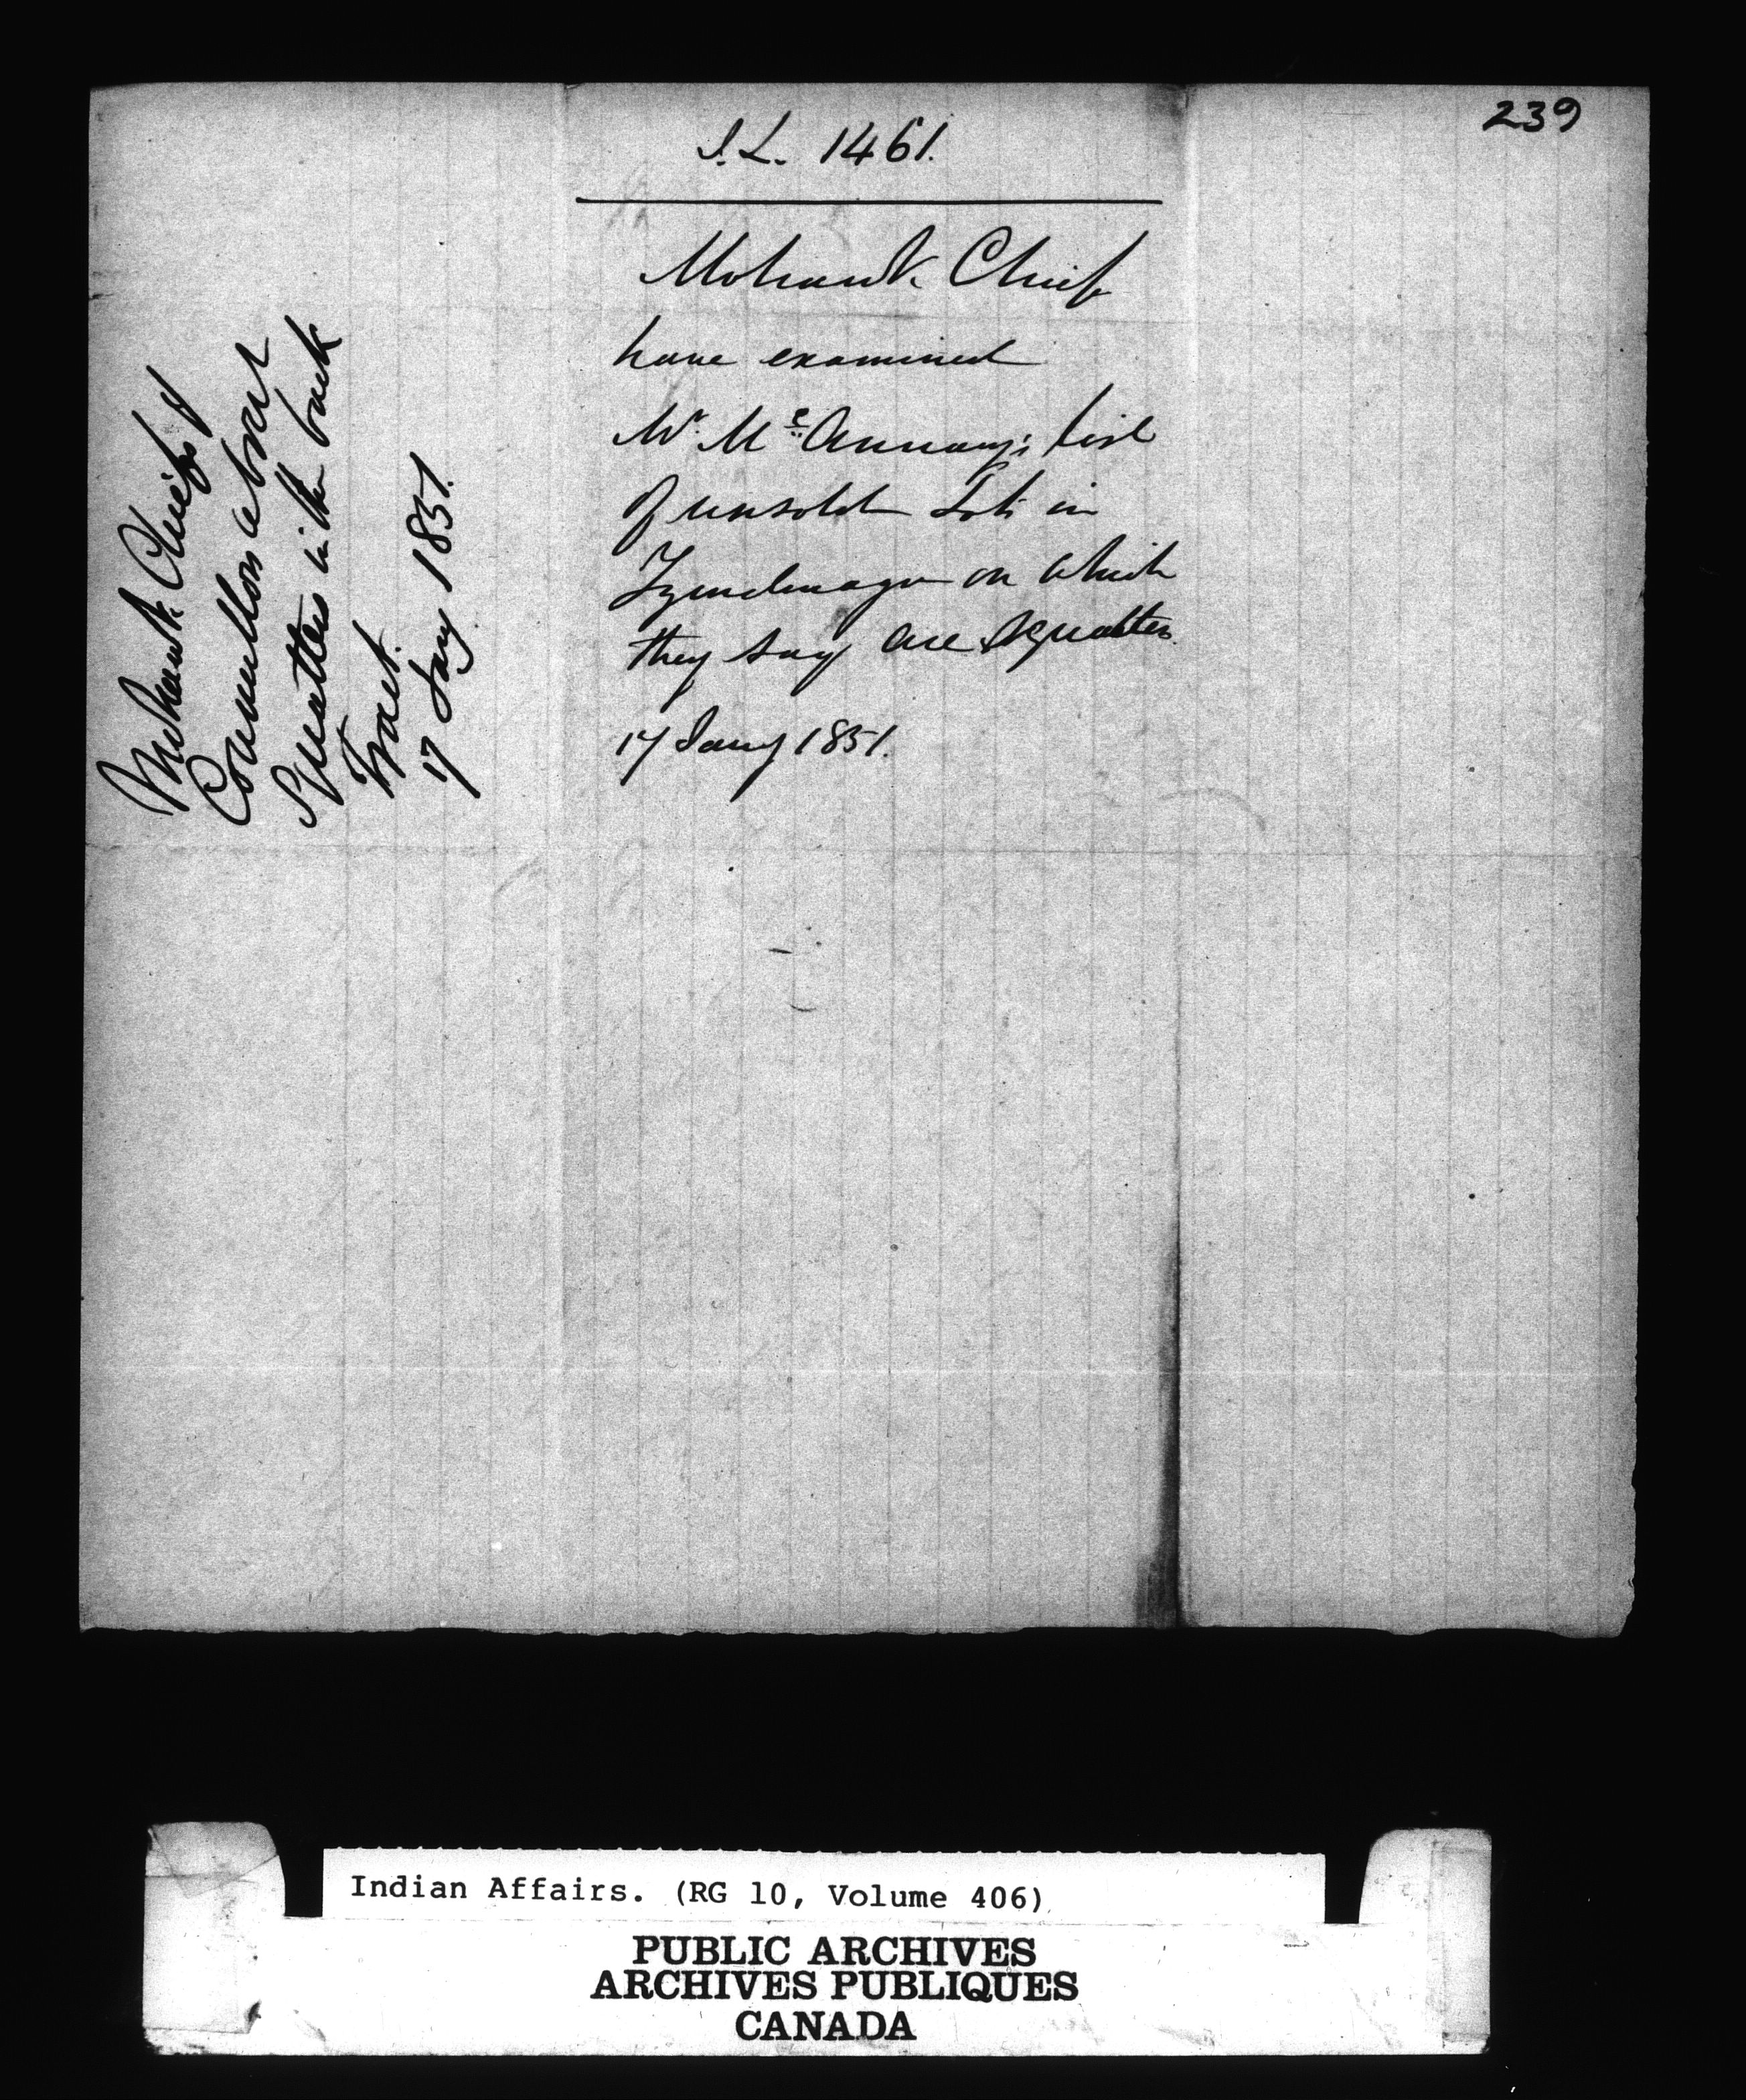 239
I.L. 1461.
Mohawk Chiefs
have examined
Mr. McAnnany's list
of unsold Lots in
Tyendenaga on which
they say are Squatters
17 Jany 1851.
Mohawk Chiefs &
Councillors about
Squatters in the back
Tract.
17 Jany 1851.
Indian Affairs. (RG 10, Volume 406)
PUBLIC ARCHIVES
ARCHIVES PUBLIQUES
CANADA